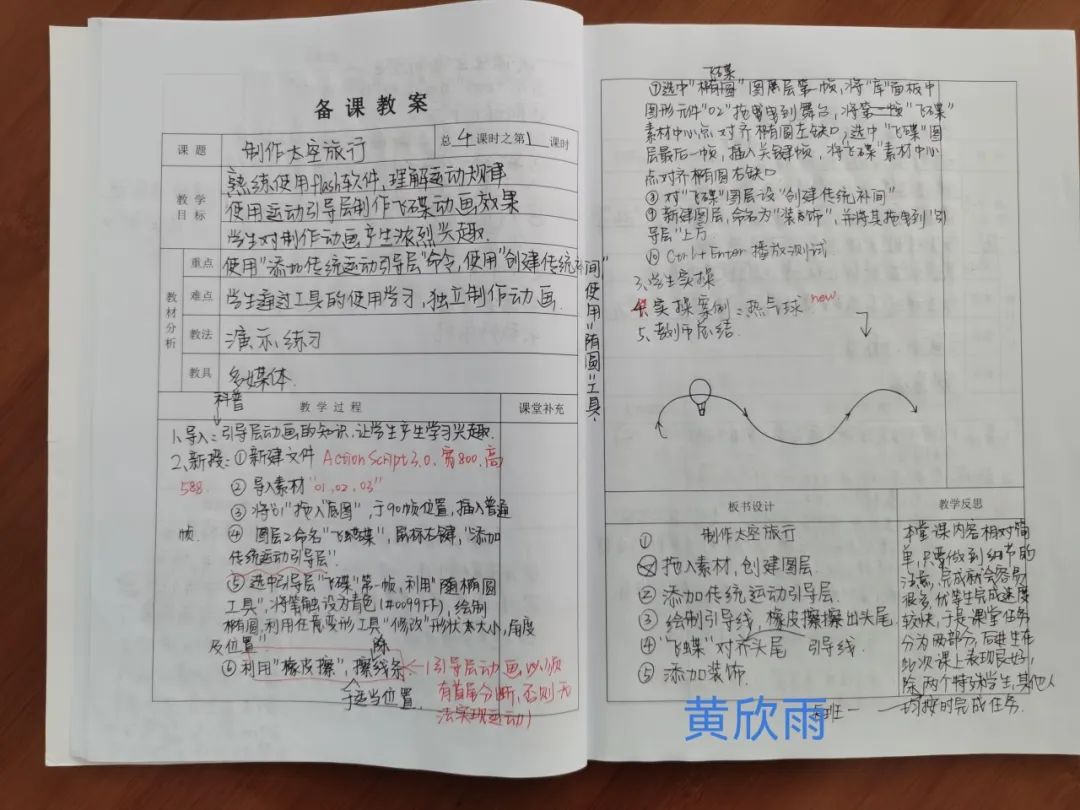 备课教案
课题 制作太空旅行 总4课时之第1课时
教学目标
熟练使用flash软件,理解运动规律
使用运动引导层制作飞碟动画效果
学生对制作动画产生浓烈兴趣.
教材分析
重点 使用"添加传统运动引导层"命令,使用"创建传统补间"
使用"椭圆"工具.
难点 学生通过工具的使用学习,独立制作动画.
教法 演示、练习
教具 多媒体.
教学过程 课堂补充
科普
1、导入:引导层动画的知识.让学生产生学习兴趣.
2、新授:①新建文件 ActionScript 3.0.宽800.高
588.
②导入素材"01、02、03"
③将"01"拖入"底图",于90帧位置,插入普通
帧
④图层2命名"飞碟",鼠标右键,"添加
传统运动引导层".
⑤选中引导层"飞碟"第一帧,利用"椭圆
工具",将笔触设为青色(#0099FF),绘制
椭圆,利用任意变形工具"修改"形状大小,角度
及位置"
⑥利用"橡皮擦",擦除线条
适当位置.
(引导层动画,必须
有首尾分断,否则无
法实现运动)
飞碟
⑦选中"椭圆"图层第一帧,将"库"面板中
图形元件"02"拖曳到舞台,将第一帧"飞碟"
素材中心点对齐椭圆左缺口,选中"飞碟"图
层最后一帧,插入关键帧,将"飞碟"素材中心
点对齐椭圆右缺口
⑧对"飞碟"图层设"创建传统补间"
⑨新建图层,命名为"装饰",并将其拖曳到"引
导层"上方.
⑩Ctrl+Enter播放测试.
3、学生实操
4、实操案例:热气球 new.
5、教师总结.
板书设计 教学反思
① 制作太空旅行
拖入素材,创建图层.
②添加传统运动引导层.
③绘制引导线,橡皮擦擦出头尾
④"飞碟"对齐头尾 引导线.
⑤添加装饰.
本堂课内容相对简
单,只要做到细节的
注意,完成就会容易
很多,优等生完成速度
较快,于是课堂任务
分为两部分,后进生在
此次课上表现良好,
除两个特殊学生,其他人
均按时完成任务.
黄欣雨